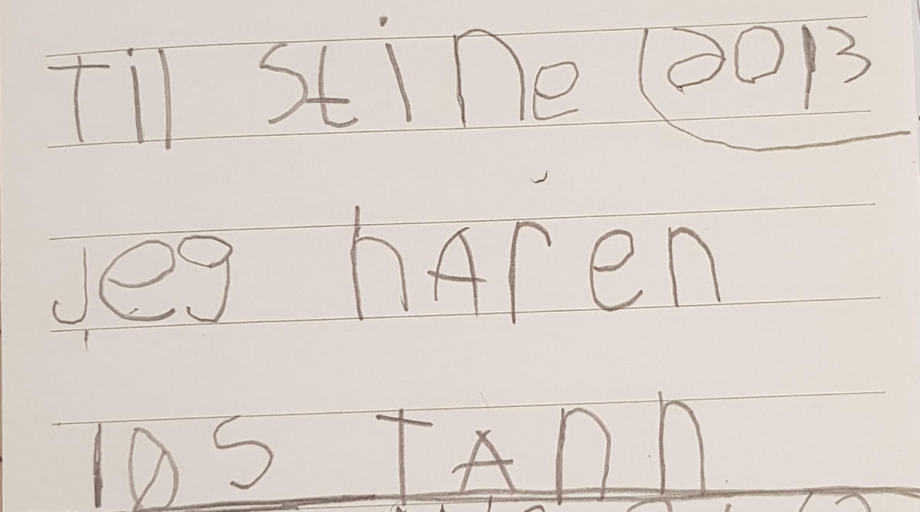 Til Stine 2013
jeg hAr en
løs TAnn